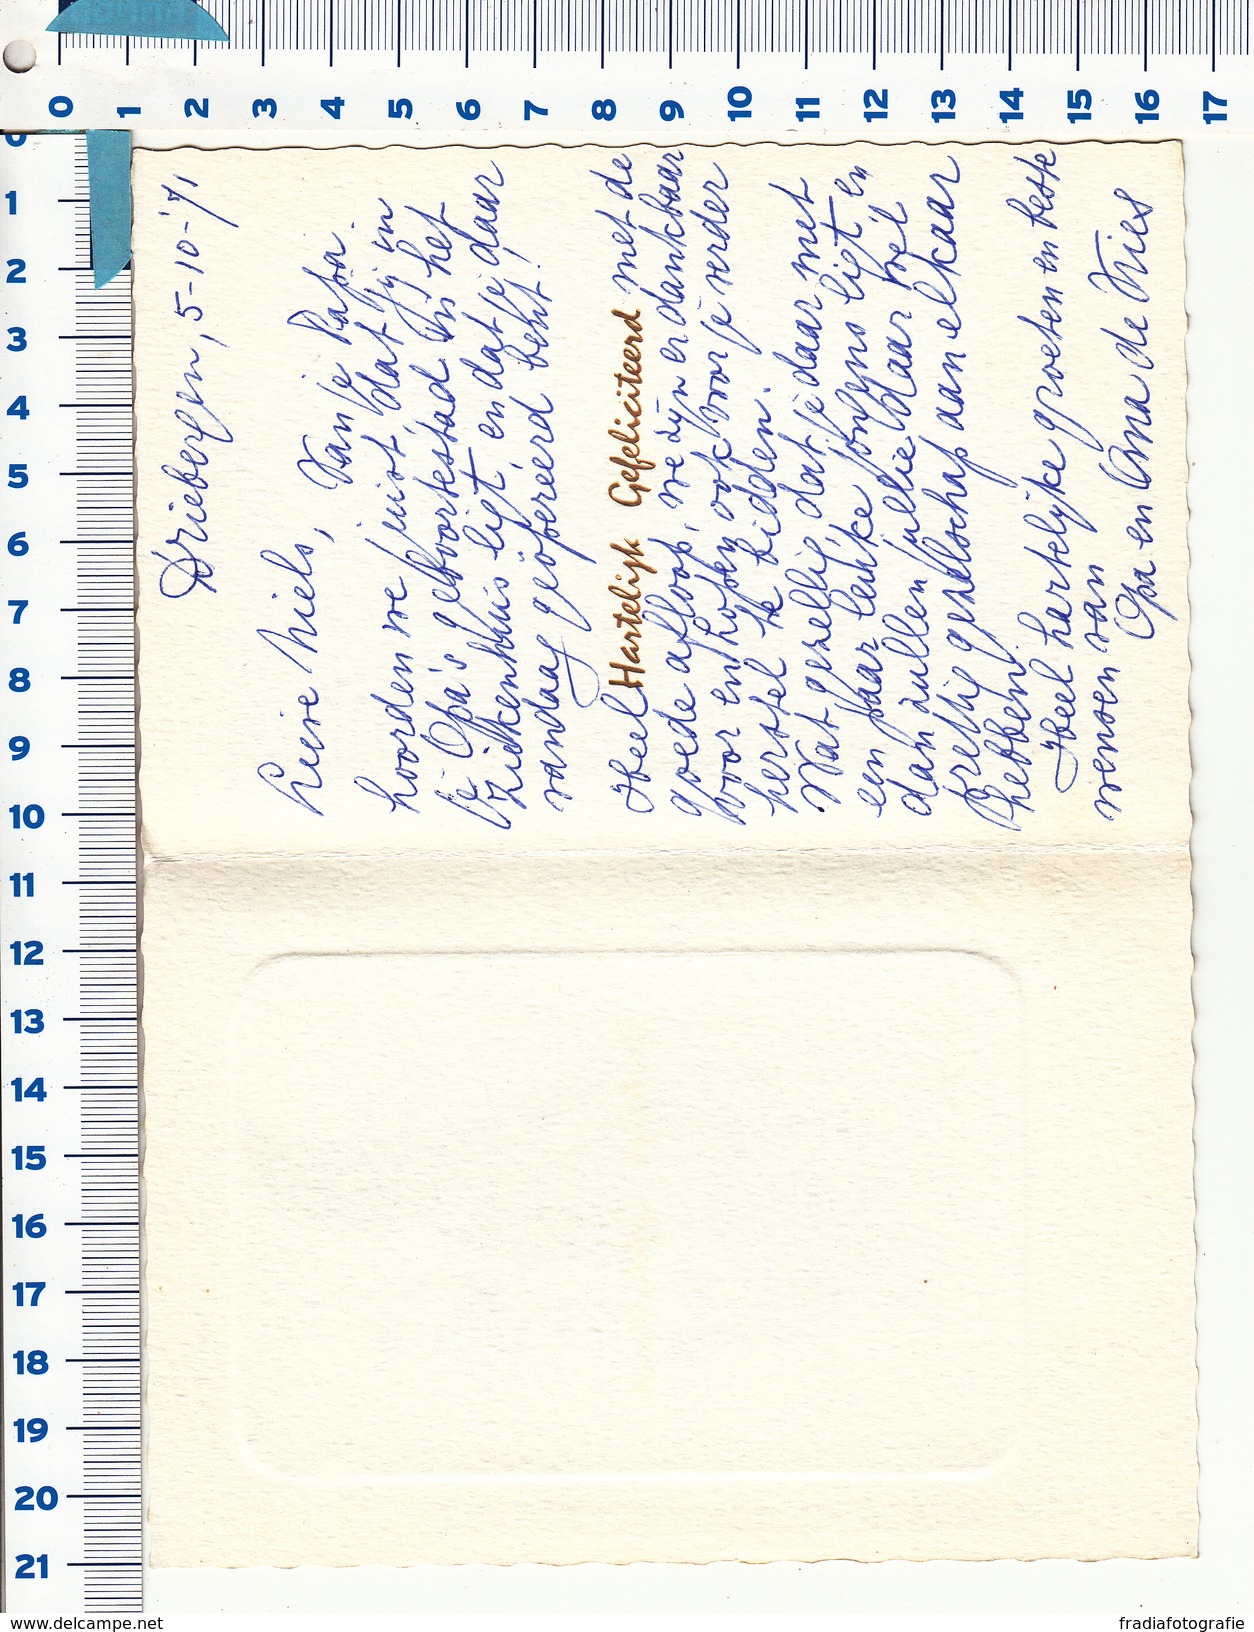 Driebergen, 5-10-'71
Lieve Niels,
Van je Papa
hoorden we juist, dat jij in
je Opa's geboortestad in het
ziekenhuis ligt, en dat je daar
vandaag geöpereerd bent.
Heel Hartelijk Gefeliciteerd met de
goede afloop, we zijn er dankbaar
voor en hopen ook voor je verder
herstel te bidden.
Wat gezellig, dat je daar met
een paar leuke jongens ligt en
dan zullen jullie daar wel
prettig gezelschap aan elkaar
hebben!
Heel hartelijke groeten en beste
wensen van
Opa en Oma de Vries
0 1 2 3 4 5 6 7 8 9 10 11 12 13 14 15 16 17
0
1
2
3
4
5
6
7
8
9
10
11
12
13
14
15
16
17
18
19
20
21
www.delcampe.net
fradiafotografie